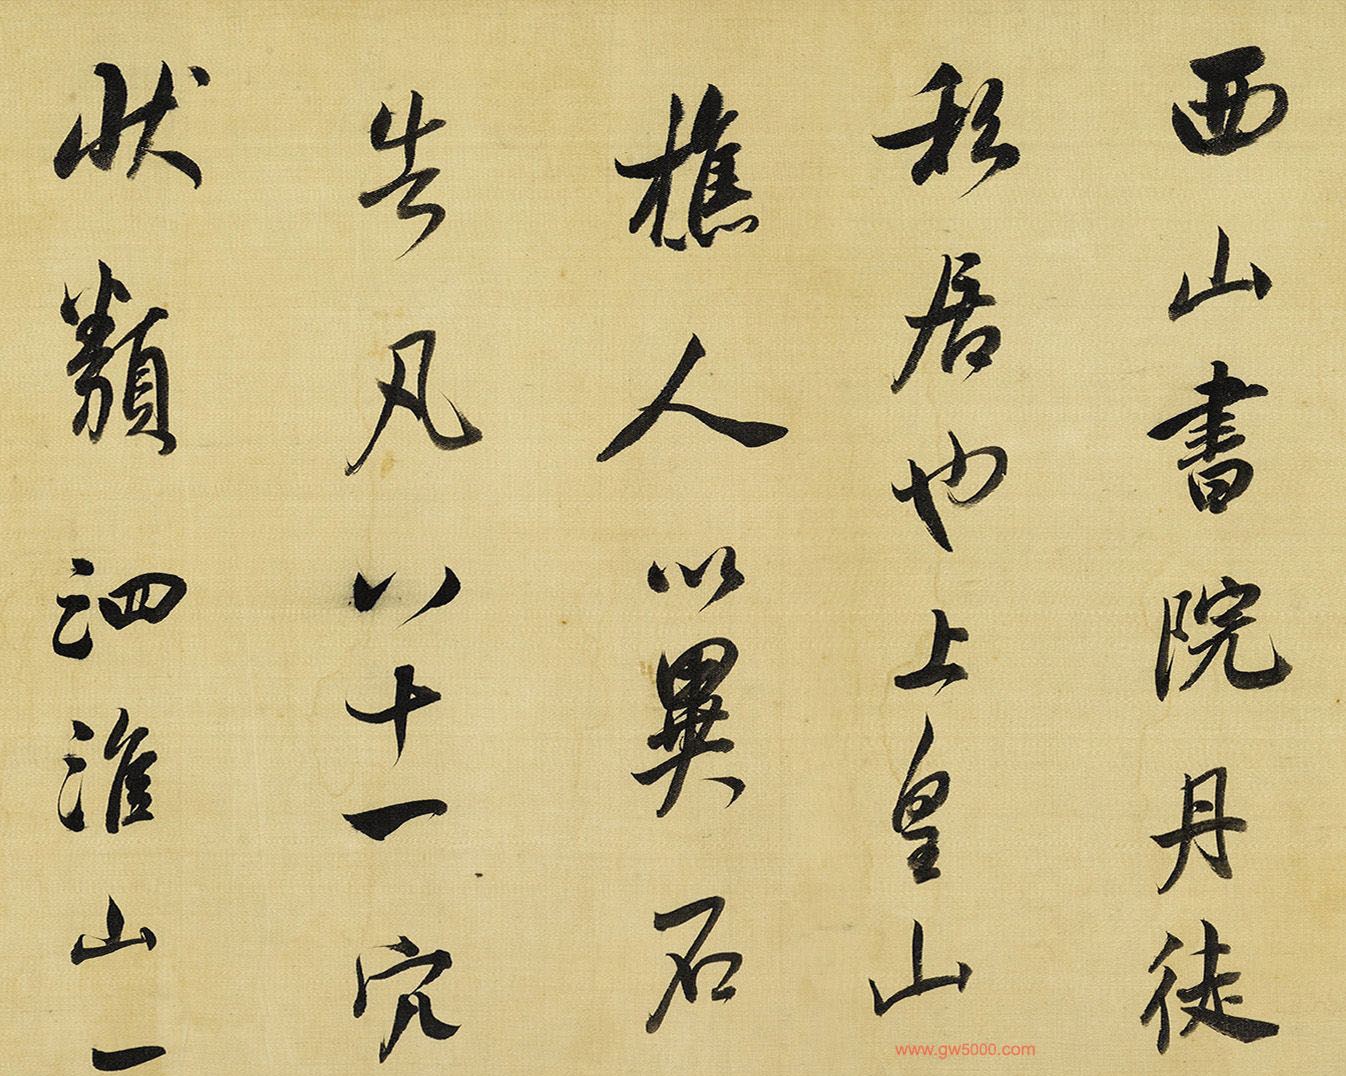 西山書院丹徒
私居也上皇山
樵人以異石
告凡八十一穴
狀類泗淮山一
www.gw5000.com